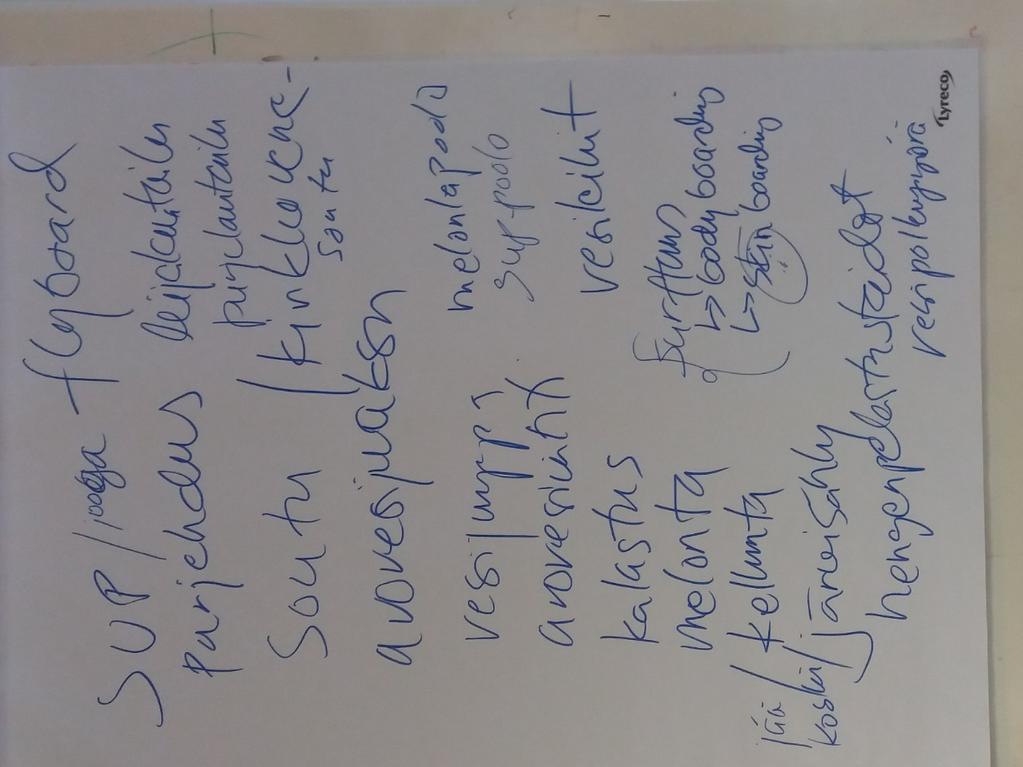 SUP/jooga flyboard
purjehdus leijalautailu
purjelautailu
soutu / kirkkovene-
soutu
avovesijuoksu
melontapoolo
vesijumppa sup-poolo
avovesiuinti vesihiihto
kalastus surffaus
melonta ↳ body boarding
↳ skimboarding
jää/ kellunta
koski/
järvisähly
hengenpelastustaidot
vesipolkupyörä
Lyreco